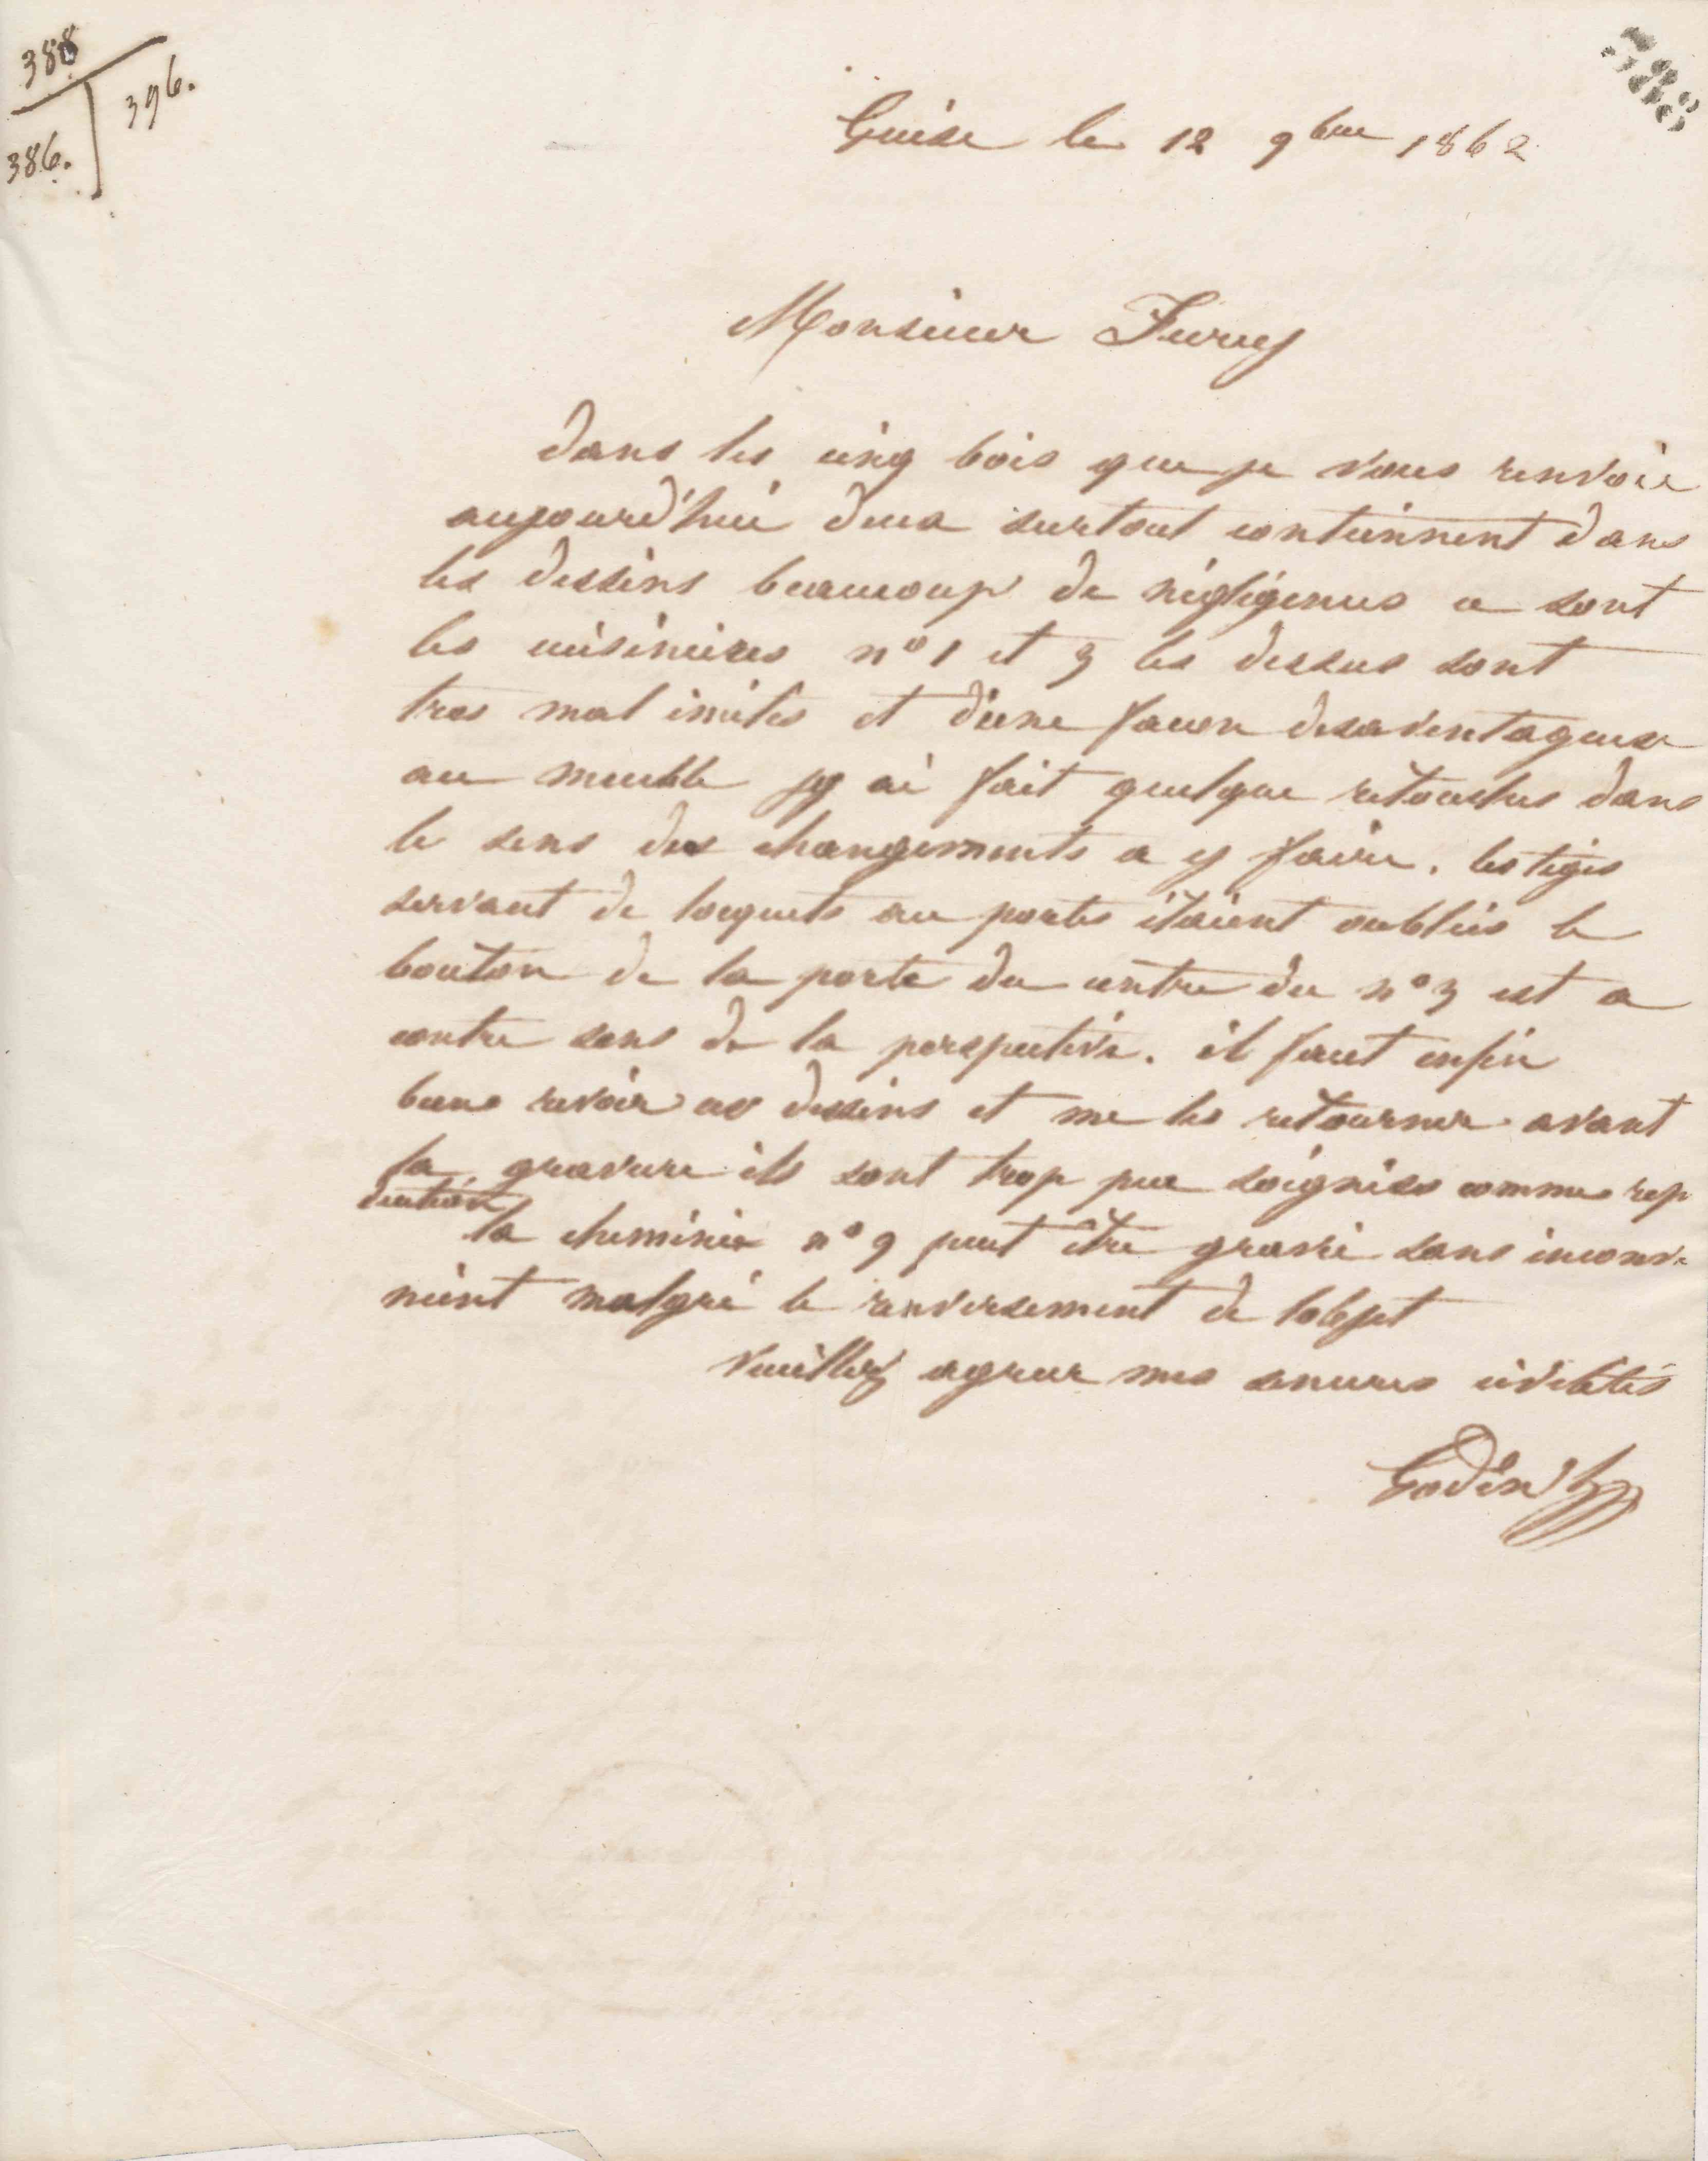 388
386.
396.
388
Guise le 12 9bre 1862
Monsieur Furey
dans les cinq bois que je vous renvoie
aujourd'hui deux surtout contiennent dans
les dessins beaucoup de négligences ce sont
les cuisinières n° 1 et 3 les dessus sont
tres mal imités et d'une facon desaventageuse
au meuble jy ai fait quelque retouches dans
le sens des changements a y faire. les tiges
servant de loquets au portes étaient oubliés le
bouton de la porte du centre du n° 3 est a
contre sens de la perspective. il faut enfin
bien revoir ces dessins et me les retourner avant
la gravure ils sont trop peu soignées comme rep
la cheminée n° 9 peut être gravée sans inconve
nient malgré le renversement de lobjet
Veuillez agreer mes sinceres civilités
Godin